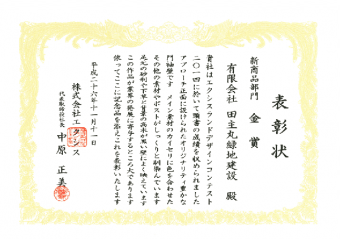 表彰状
新商品部門　金賞
有限会社　田主丸緑地建設　殿
貴社はエクシスランドデザインコンテスト
二〇一四に於いて頭書の成績を収められました
アプローチ正面に設けられたオリジナリティ豊かな
門袖壁です　メイン素材のカイセリに色を合わせた
その他の素材やポストがしっくりと馴染んでいます
足元の砂利や下草と背景の灰木が黒い壁によく映えています
この作品が業界の発展に寄与するところ大であります
依ってここに記念品を添えこれを表彰いたします
平成二十六年十一月十一日
株式会社エクシス
代表取締役社長
中原　正美